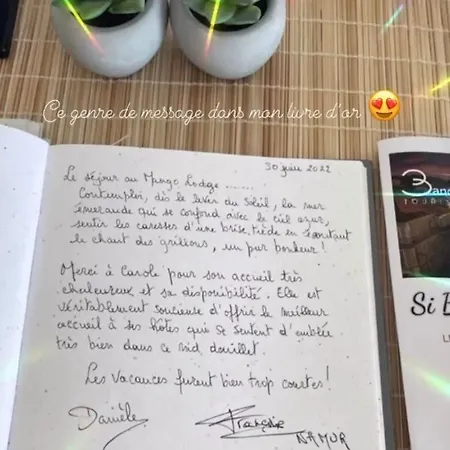 Ce genre de message dans mon livre d'or 😍
30 juin 2022
Le séjour au Mango Lodge .......
Contempler, dès le lever du Soleil, la mer
émeraude qui se confond avec le ciel azur,
sentir les caresses d'une brise tiède en écoutant
le chant des grillons, un pur bonheur !
Merci à Carole pour son accueil très
chaleureux et sa disponibilité. Elle est
véritablement soucieuse d'offrir le meilleur
accueil à ses hôtes qui se sentent d'emblée
très bien dans ce nid douillet.
Les vacances furent bien trop courtes !
Danièle
Françoise
NAMUR
Si